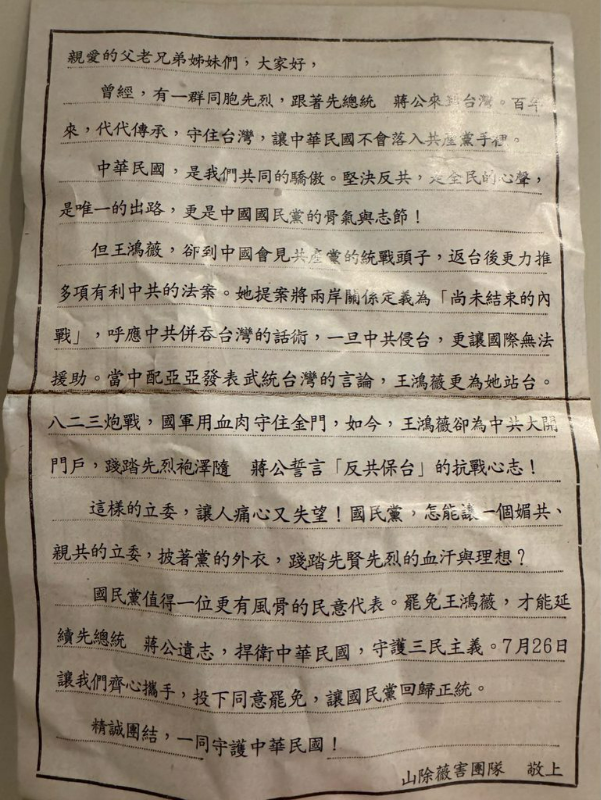 親愛的父老兄弟姊妹們，大家好，
曾經，有一群同胞先烈，跟著先總統　蔣公來到台灣。百年
來，代代傳承，守住台灣，讓中華民國不會落入共產黨手裡。
中華民國，是我們共同的驕傲。堅決反共，是全民的心聲，
是唯一的出路，更是中國國民黨的骨氣與志節！
但王鴻薇，卻到中國會見共產黨的統戰頭子，返台後更力推
多項有利中共的法案。她提案將兩岸關係定義為「尚未結束的內
戰」，呼應中共併吞台灣的話術，一旦中共侵台，更讓國際無法
援助。當中配亞亞發表武統台灣的言論，王鴻薇更為她站台。
八二三炮戰，國軍用血肉守住金門，如今，王鴻薇卻為中共大開
門戶，踐踏先烈袍澤隨　蔣公誓言「反共保台」的抗戰心志！
這樣的立委，讓人痛心又失望！國民黨，怎能讓一個媚共、
親共的立委，披著黨的外衣，踐踏先賢先烈的血汗與理想？
國民黨值得一位更有風骨的民意代表。罷免王鴻薇，才能延
續先總統　蔣公遺志，捍衛中華民國，守護三民主義。7月26日
讓我們齊心攜手，投下同意罷免，讓國民黨回歸正統。
精誠團結，一同守護中華民國！
山除薇害團隊　敬上